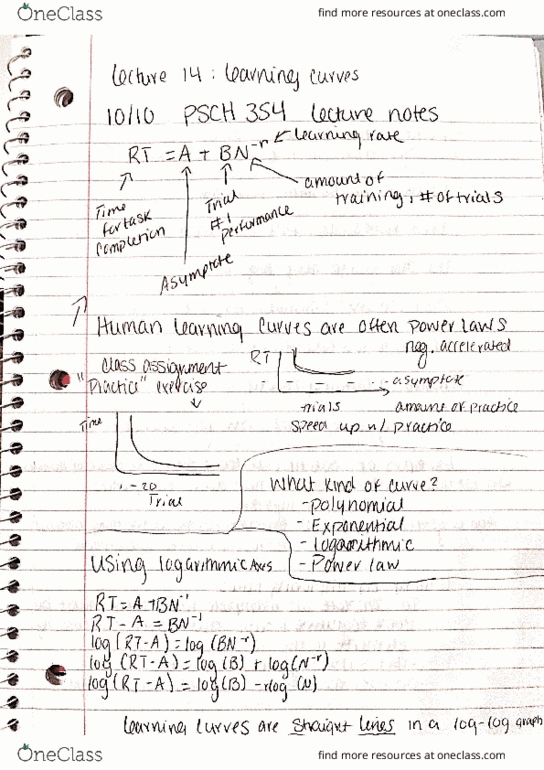 OneClass
find more resources at oneclass.com
Lecture 14 : Learning curves
10/10 PSCH 354 lecture notes
RT = A + BN⁻ʳ ← learning rate
Time for task completion
Asymptote
Trial #1 performance
amount of training, # of trials
Human learning curves are often power laws
class assignment
"Practice" exercise
Time
1 - 20
Trial
RT
neg. accelerated
asymptote
trials
amount of practice
speed up w/ practice
What kind of curve?
- polynomial
- Exponential
- logarithmic
- Power law
Using logarithmic Axes
RT = A + BN⁻ʳ
RT - A = BN⁻ʳ
log(RT-A) = log(BN⁻ʳ)
log(RT-A) = log(B) + log(N⁻ʳ)
log(RT-A) = log(B) - rlog(N)
Learning curves are straight lines in a log-log graph
OneClass
find more resources at oneclass.com